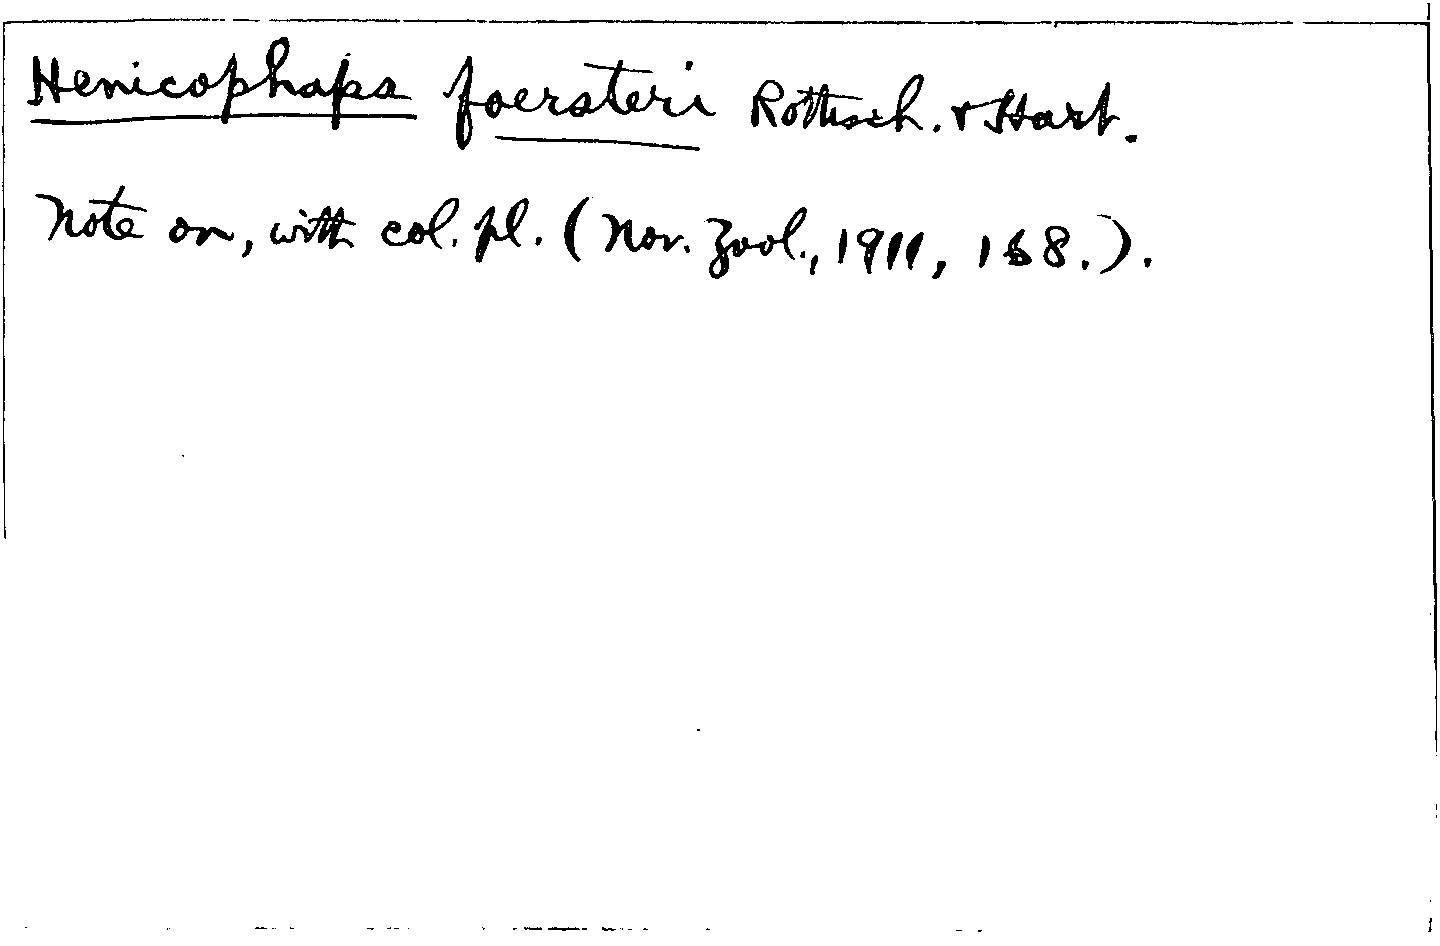 Henicophaps foersteri Rothsch. & Hart.
Note on, with col. pl. (Nov. Zool., 1911, 168.).